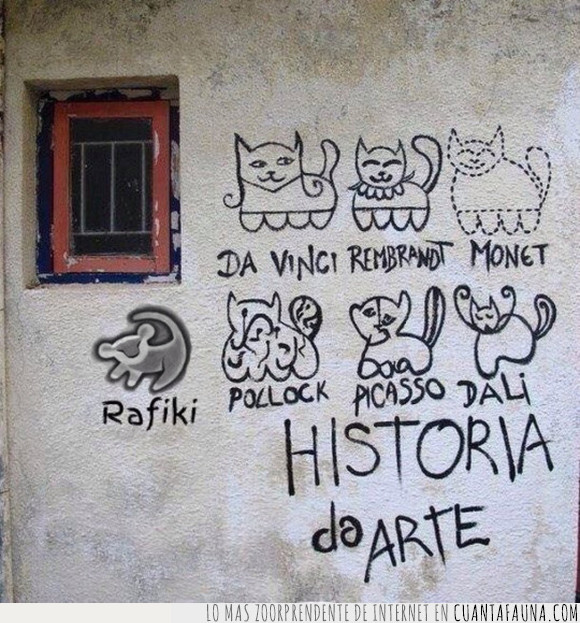 DA VINCI REMBRANDT MONET
POLLOCK PICASSO DALi
Rafiki
HISTORIA
da ARTE
LO MAS ZOORPRENDENTE DE INTERNET EN CUANTAFAUNA.COM